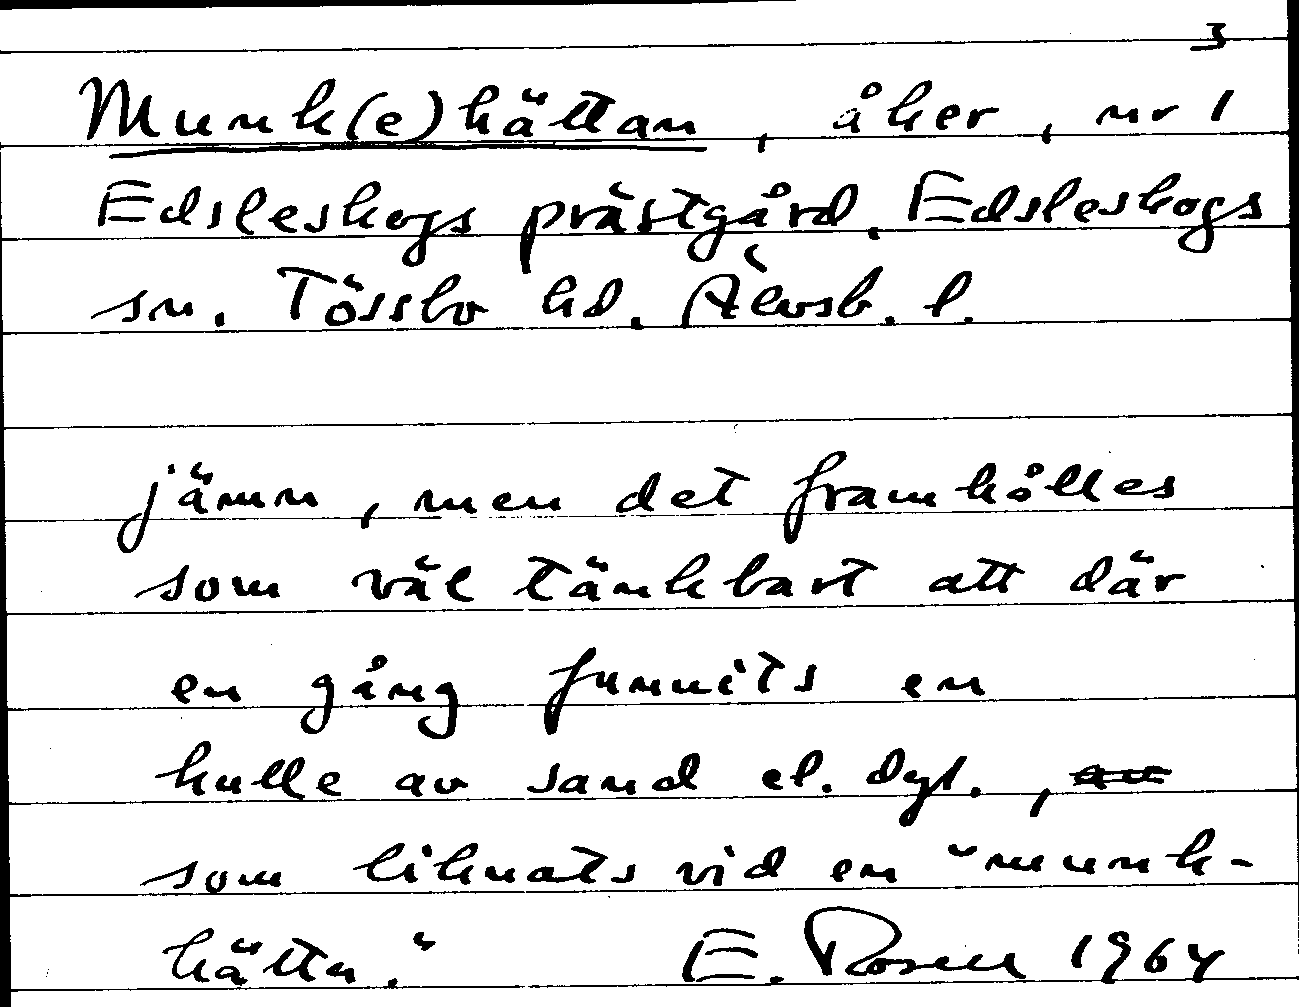 3
Munk(e)hättan, åker, nr 1
Edsleskogs prästgård, Edsleskogs
sn. Tössbo hd. Älvsb. l.
jämn, men det framhålles
som väl tänkbart att där
en gång funnits en
kulle av sand el. dyl., av
som liknats vid en "munk-
hätta."  E. Rosell 1964